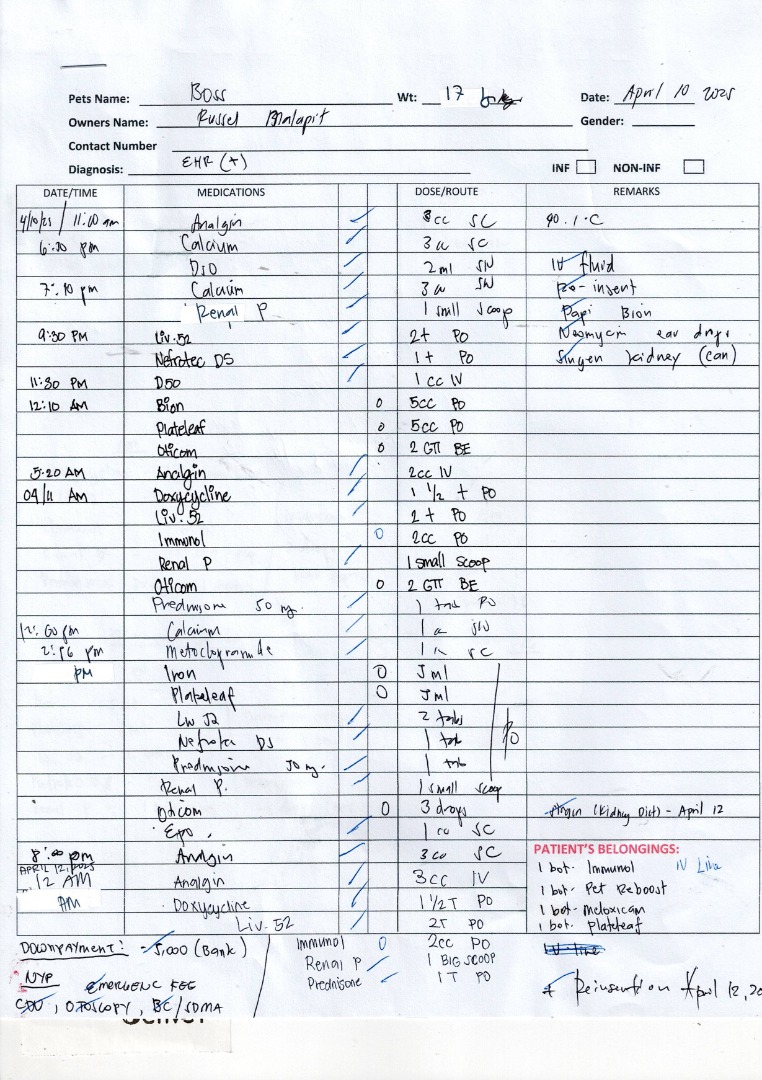 Pets Name: Boss Wt: 17 Date: April 10 2025
Owners Name: Russel Malapit Gender:
Contact Number
Diagnosis: EHR (+) INF NON-INF
DATE/TIME MEDICATIONS DOSE/ROUTE REMARKS
4/10/25 / 11:00 am Analgin 3cc SC 40.1°C
6:30 pm Calcium 3cc SC
D50 2ml IV fluid
7:10 pm Calcium 3cc Re-insert
Renal P 1 small scoop Papi Bion
9:30 PM Liv.52 2t PO Neomycin ear drops
Nefrotec DS 1t PO kidney (can)
11:30 PM D50 1cc IV
12:10 AM Bion 0 5cc PO
Plateleaf 0 5cc PO
Oticom 0 2 GTT BE
5:20 AM Analgin 2cc IV
04/11 AM Doxycycline 1 1/2 t PO
Liv.52 2t PO
Immunol 0 2cc PO
Renal P 1 small scoop
Oticom 0 2 GTT BE
Prednisone 50 mg. 1 tab PO
12:00 pm Calcium 1cc
2:56 pm Metoclopramide 1cc SC
PM Iron 0 5ml
Plateleaf 0 5ml
Liv 52 2 tabs
Nefrotec DS 1 tab PO
Prednisone 50 mg. 1 tab
Renal P. 1 small scoop
Oticom 0 3 drops (Kidney Diet) - April 12
Epo. 1cc SC
8:00 pm Analgin 3cc SC PATIENT'S BELONGINGS:
APRIL 12, 2025
12 AM Analgin 3cc IV 1 bot. Immunol IV Line
AM Doxycycline 1 1/2 T PO 1 bot. Pet Reboost
Liv.52 2T PO 1 bot. meloxicam
1 bot. plateleaf
DOWNPAYMENT: - 5,000 (Bank) Immunol 0 2cc PO IV line
Renal P 1 BIG SCOOP
NYP EMERGENC FEE Prednisone 1 T PO * Reinsertion April 12, 20
CDV, OTOSCOPY, BC/SDMA